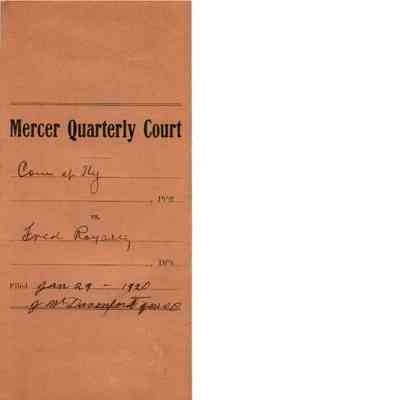 Mercer Quarterly Court
Com of Ky
, Pl'ff
vs.
Fred
, Df't
Filed Jan 29 - 1920
J Mc Davenport